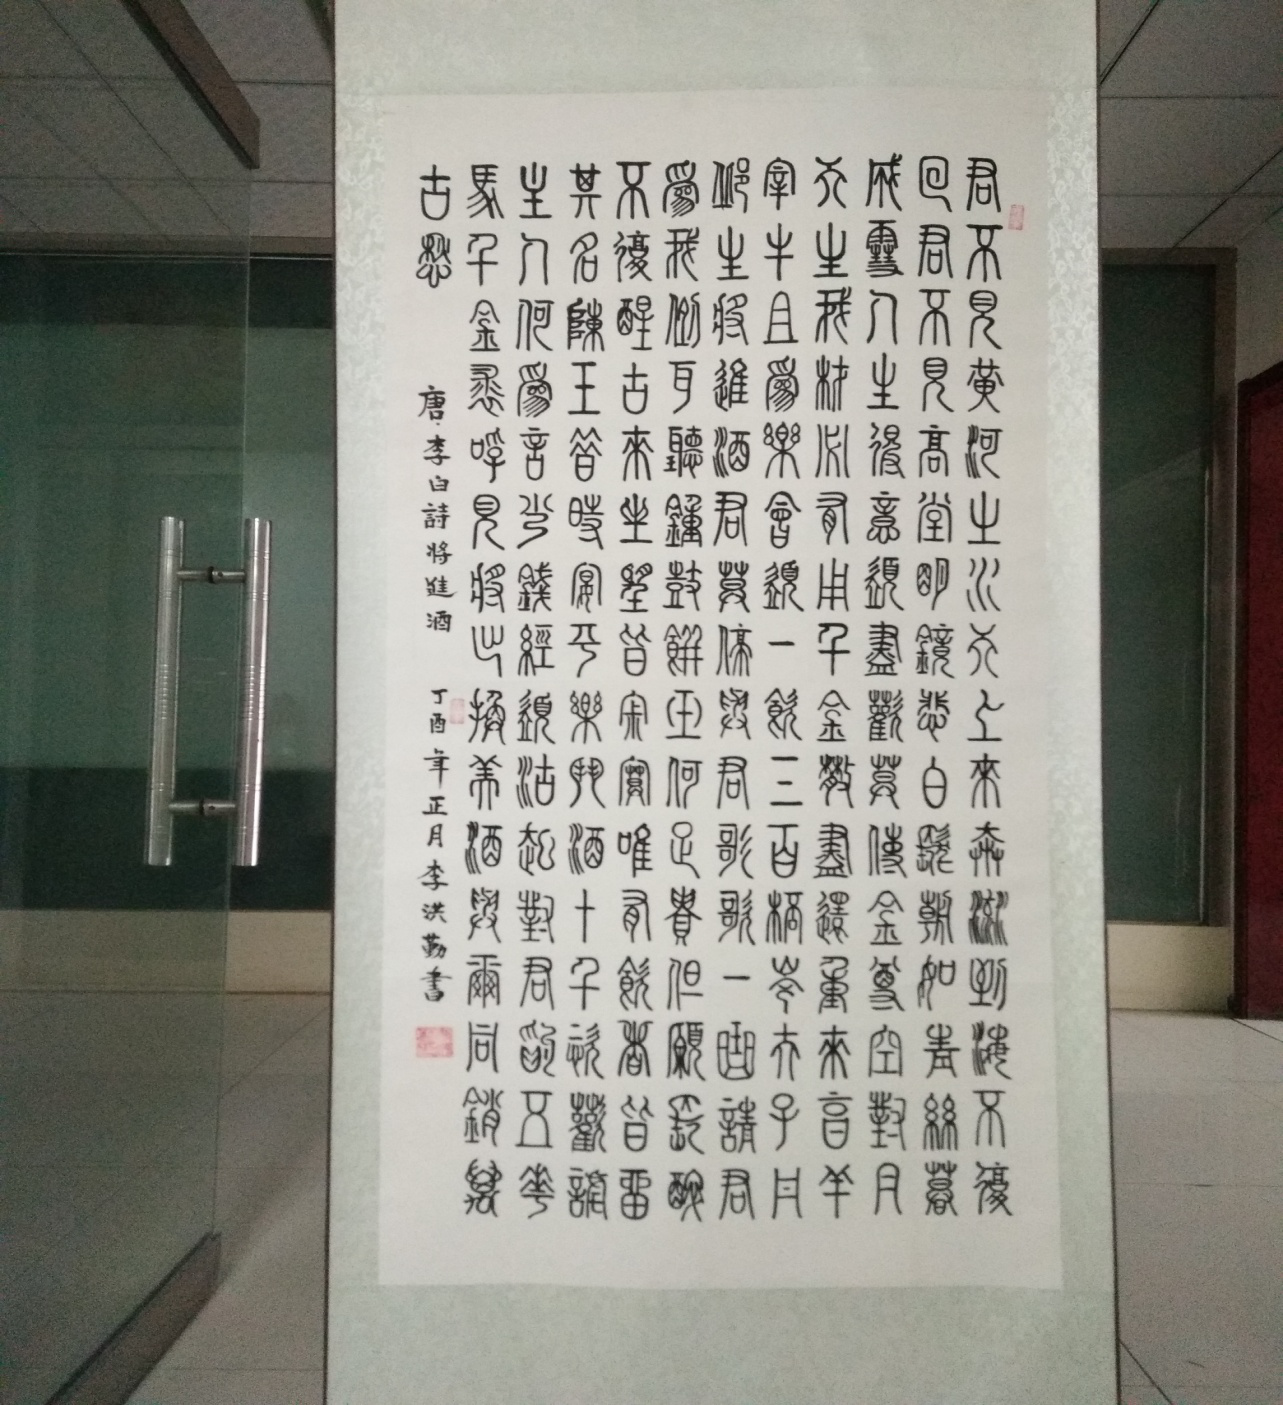 君不見黃河之水天上來奔流到海不復
回君不見高堂明鏡悲白髮朝如青絲暮
成雪人生得意須盡歡莫使金尊空對月
天生我材必有用千金散盡還重來烹羊
宰牛且爲樂會須一飲三百杯岑夫子丹
邱生將進酒君莫停與君歌歌一曲請君
爲我側耳聽鐘鼓饌玉何足貴但願長醉
不復醒古來聖賢皆寂寞唯有飲者皆留
其名陳王昔時宴平樂鬥酒十千恣歡謔
主人何爲言少錢經須沽取對君酌五花
馬千金裘呼兒將出換美酒與爾同銷萬
古愁 唐·李白詩將進酒 丁酉年正月李洪勤書